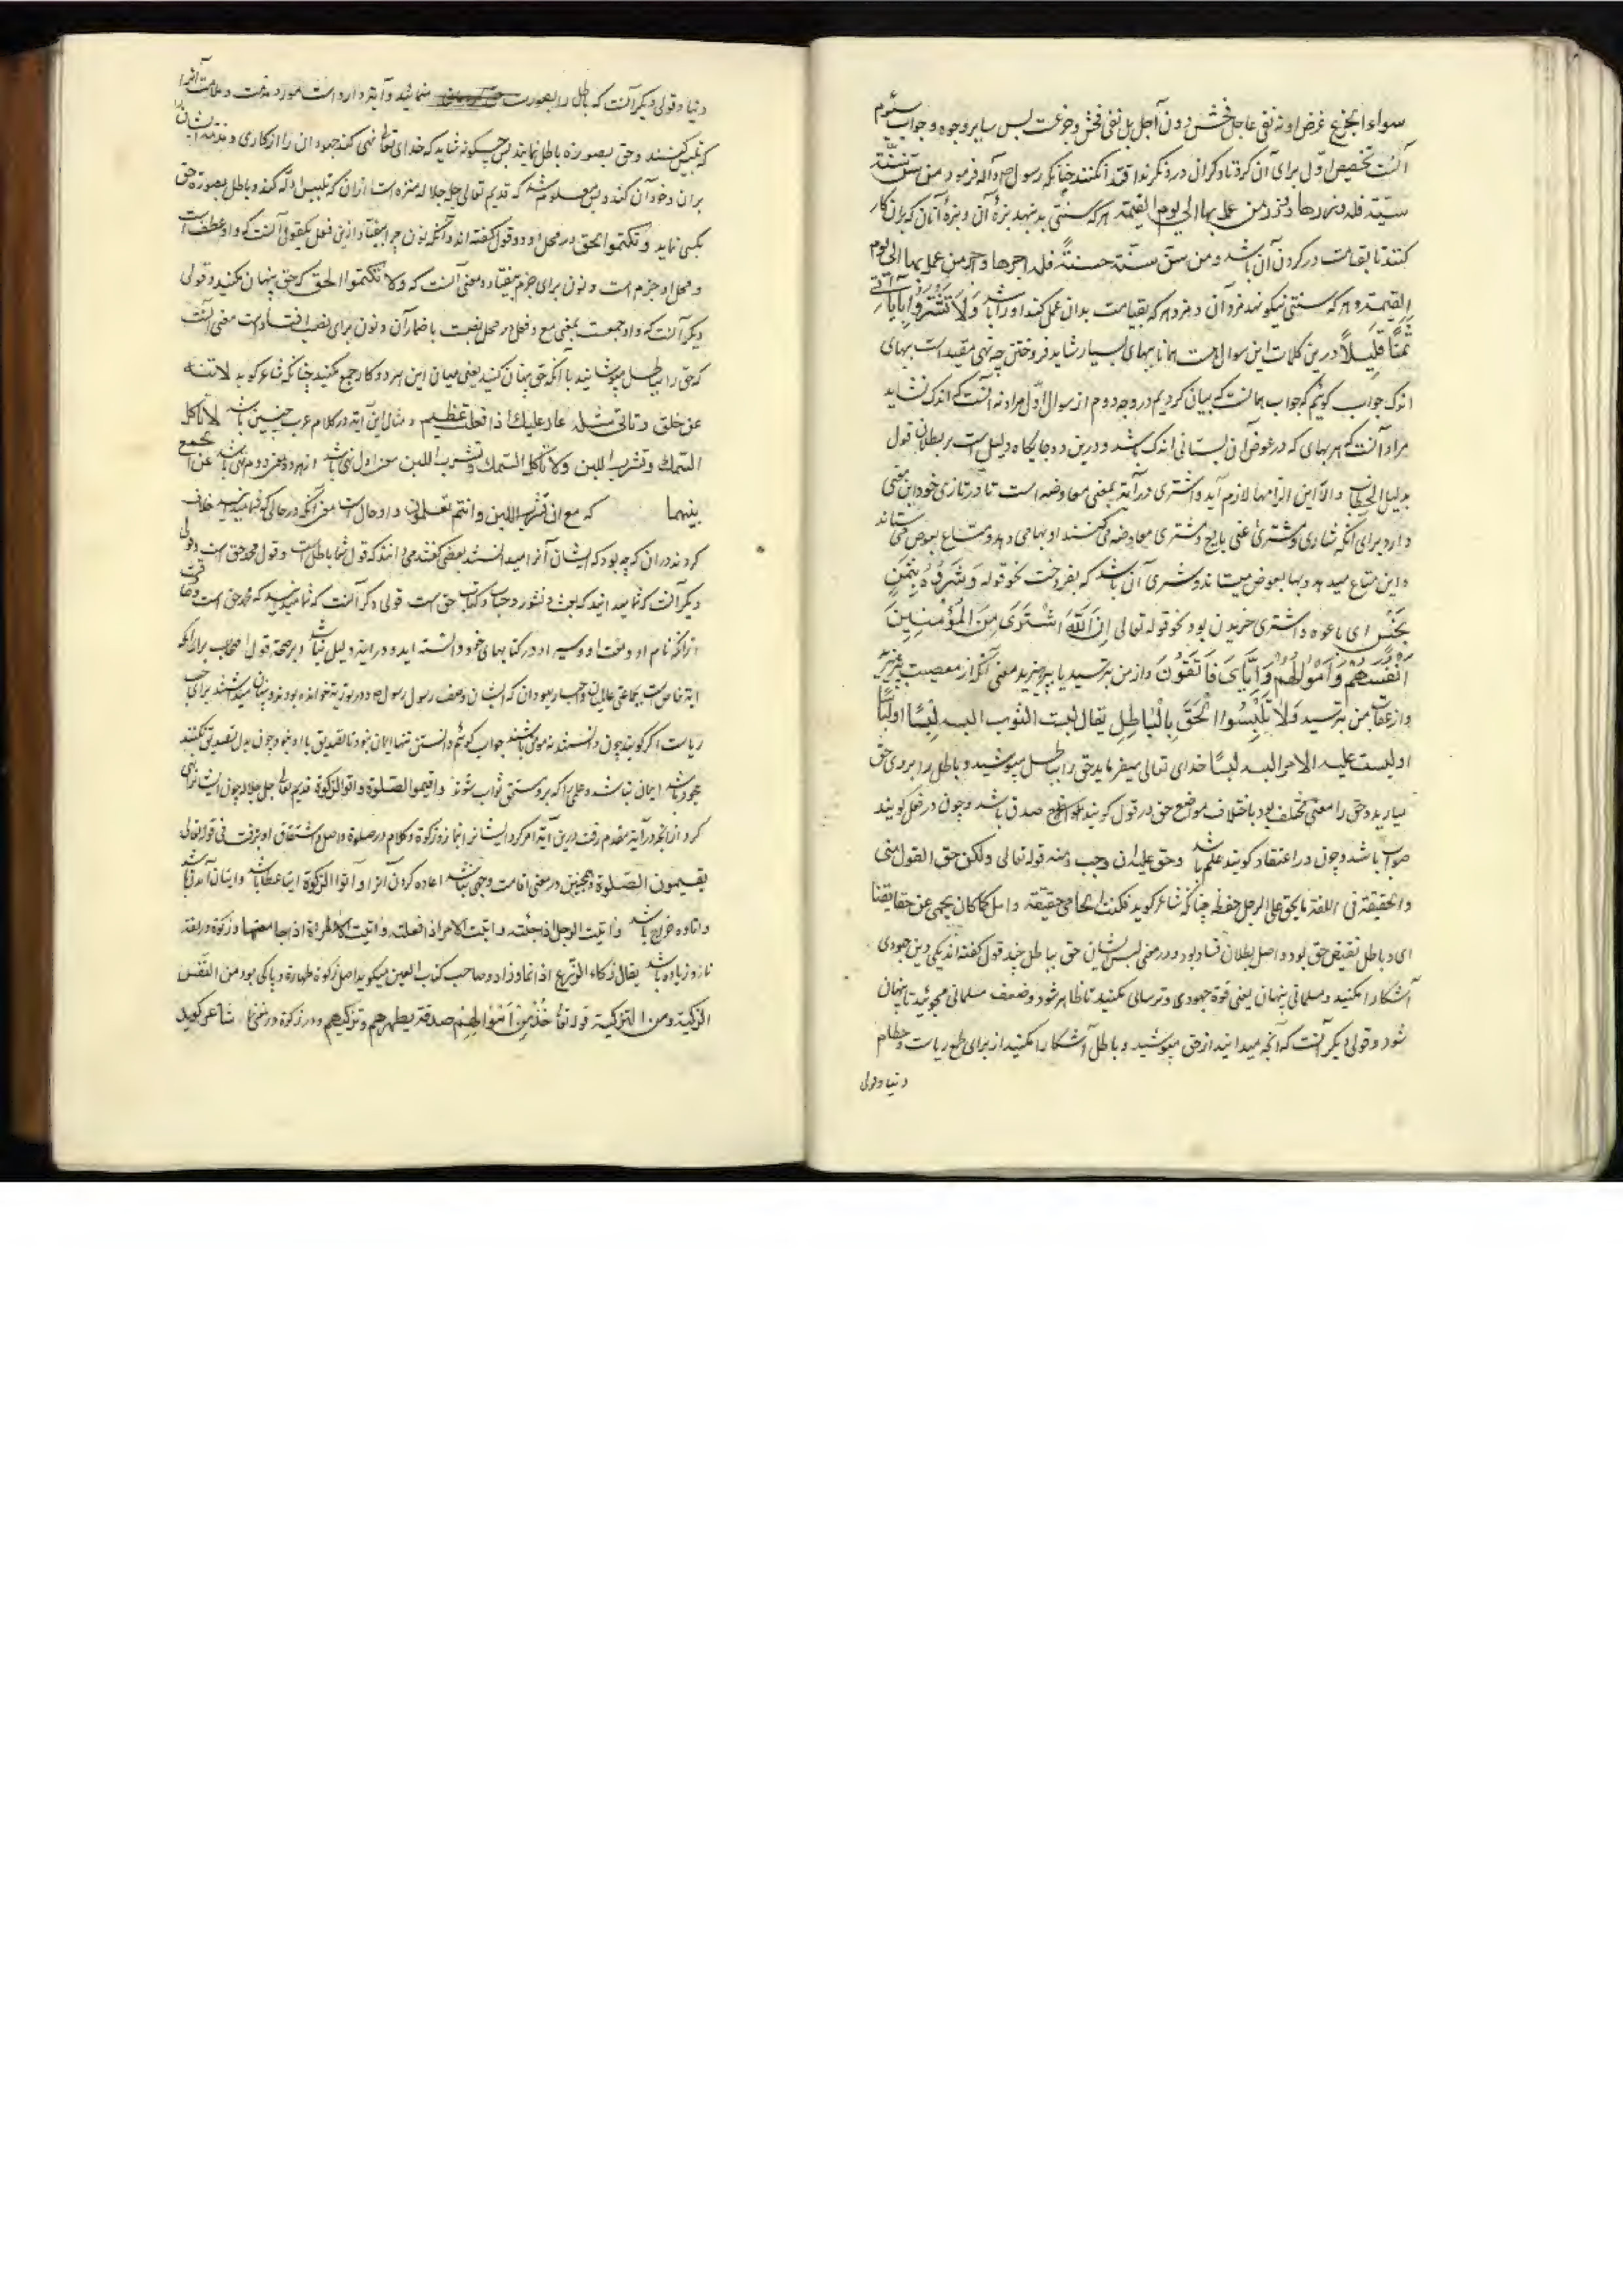 سواء الجزع غرض او نه نفی عاجل فحش دون آجل بل نفی فحش و جزعت پس سایر وجوه و جواب سئوم
آنست تخصیص اول برای آن کرد تا دگران در و نگرند اقتدا نکنند چنانکه رسول ص و آله فرمود من سن سنّة
سیّئة فله وزرها و وزر من عمل بها الی یوم القیمة هر که سنتی بد بنهد بزۀ آن و بزۀ آنان که بران کار
کنند تا بقیامت در کردن آن باشد و من سن سنّة حسنةً فله اجرها و اجر من عمل بها الی یوم
القیمة و هر که سنتی نیکو نهد مزد آن و مزد هر که بقیامت بدان عمل کند او را باشد وَلَا تَشْتَرُوا بِآيَاتِي
ثَمَنًا قَلِيلًا درین کلمات این سوال هست همانا ببهای بسیار شاید فروختن چه نهی مقید است ببهای
اندک جواب گوئیم که جواب همانست که بیان کردیم در وجه دوم از سوال اوّل مراد نه آنست که اندک نشاید
مراد آنست که هر بهای که در عوض آن بستانی اندک باشد و درین دو جایگاه دلیل است بر بطلان قول
بدلیل الخطاب والا این الزامها لازم آید و اشتری در آیة بمعنی معاوضه است تا در تازی خود این معنی
دارد برای آنکه شاری و مشتری اعنی بایع و مشتری معاوضه می کنند او بها می دهد و متاع بعوض می ستاند
و این متاع میدهد و بها بعوض میستاند و شری آن باشد که بفروخت نحو قوله وَشَرَوْهُ بِثَمَنٍ
بَخْسٍ ای باعوه و اشتری خریدن بود نحو قوله تعالی إِنَّ اللَّهَ اشْتَرَى مِنَ الْمُؤْمِنِينَ
أَنْفُسَهُمْ وَأَمْوَالَهُمْ وَإِيَّايَ فَاتَّقُونَ و از من بترسید یا بپرهیزید معنی آنکه از معصیت بپرهیزید
و از عقاب من بترسید وَلَا تَلْبِسُوا الْحَقَّ بِالْبَاطِلِ یقال لبست الثوب البسه لُبسًا
او لبست علیه الامر البسه لبسًا خدای تعالی میفرماید حق را بباطل مپوشید و باطل را بروی حق
میارید و حق را معنی مختلف بود باختلاف مواضع حق در قول گویند صدق باشد و چون در فعل گویند
صواب باشد و چون در اعتقاد گویند علم باشد و حق علیه ان وجب و منه قوله تعالی ولکن حق القول منی
والحقیقة فی اللغة ما یحق علی الرجل حفظه چنانکه شاعر گوید
ای و باطل نقیض حق بود و اصل بطلان فساد بود و در معنی لبس ایشان حق بباطل چند قول گفته اند یکی دین جهودی
آشکارا مکنید و مسلمانی پنهان یعنی قوة جهودی و ترسائی مکنید تا ظاهر شود و ضعف مسلمانی مجوئید تا پنهان
شود و قولی دیگر آنست که آنچه میدانید از حق مپوشید و باطل آشکارا مکنید از برای طمع ریاست و حطام
دنیا و قولی
دنیا و قولی دیگر آنست که باطل را بصورت حق منمائید و آیة وارد است مورد مذمت و ملامت آنرا
که تلبیس کنند و حق بصورة باطل نمایند پس چگونه شاید که خدای تعالی نهی کند جهودان را از کاری و مذمت ایشان
بران و خود آن کند و پس معلوم شد که قدیم تعالی جل جلاله منزه است از آن که تلبیس ادلّه کند و باطل بصورة حق
بکسی نماید و تکتموا الحق در محل او دو قول گفته اند و آنکه نون چرا بیفتاد ازین فعل یک قول آنست که واو عطف است
و محل او جزم است و نون برای جزم بیفتاد و معنی آنست که ولا تکتموا الحق که حق پنهان مکنید و قولی
دیگر آنست که واو جمعست بمعنی مع و فعل در محل نصبست باضمار آن و نون برای نصب افتاده است معنی آنست
که حق را بباطل مپوشانید با آنکه حق پنهان کنید یعنی میان این هر دو کار جمع مکنید چنانکه شاعر گوید لا تنه
عن خلق و تأتی مثله عار علیك اذا فعلت عظیم و مثال این آیة در کلام عرب چنین باشد لا تأکل
السّمك وتشرب اللبن ولا تأکل السّمك وتشرب اللبن معنی اول نهی باشد از هر دو و معنی دوم نهی باشد عن الجمع
بینهما که مع ان تشرب اللبن وانتم تعلمون واو حال است معنی آنکه در حالی که شما میدانید خلاف
کردند در آن که چه بود که ایشان آنرا میدانستند بعضی گفتند میدانند که قول شما باطل است و قول محمد حق است و قولی
دیگر آنست که شما میدانید که بعث و نشور و حساب و کتاب حق است قولی دگر آنست که شما میدانید که محمد حق است
از آنکه نام او و نعت او و سیره او در کتابهای خود دانسته اید و در آیة دلیل نباشد بر صحة قول اصحاب برای آنکه
آیة خاص است بجماعتی عالمان و احبار یهودان که ایشان وصف رسول ص در توریة خوانده بودند و پنهان میداشتند برای حب
ریاست اگر گویند چون دانستند نه مومن باشند جواب گوئیم دانستن تنها ایمان نبود تا تصدیق با او نبود و چون بدل تصدیق نکنند
جهود باشد ایمان نباشد و علمی را که برو مستحق ثواب شوند واقیموا الصلوة واتوا الزکوة قدیم تعالی جل جلاله چون ایشانرا نهی
کرد از آنچه در آیة مقدم رفت درین آیة امر کرد ایشانرا بنماز و زکوة و کلام در صلوة و اصل و اشتقاق او برفت فی قوله تعالی
یقیمون الصّلوة و همچنین در معنی اقامت وجهی نباشد اعاده کردن آنرا و آتوا الزکوة ایتا عطا باشد و اتیان آمدن باشد
و اتاوه خراج باشد و اتیت الرجل اذا جئته و اتیت الامر اذا فعلته و اتیت المرأة اذا جامعتها و زکوة در لغة
نما و زیاده باشد یقال زکاء الزرع اذا نما و زاد و صاحب کتاب العین میگوید اصل زکوة طهارة و پاکی بود من النّفس
الزکیّة ومن التزکیة قوله تعالی خُذْ مِنْ أَمْوَالِهِمْ صدقة تطهرهم وتزکیهم و در زکوة در معنی نما شاعر گوید